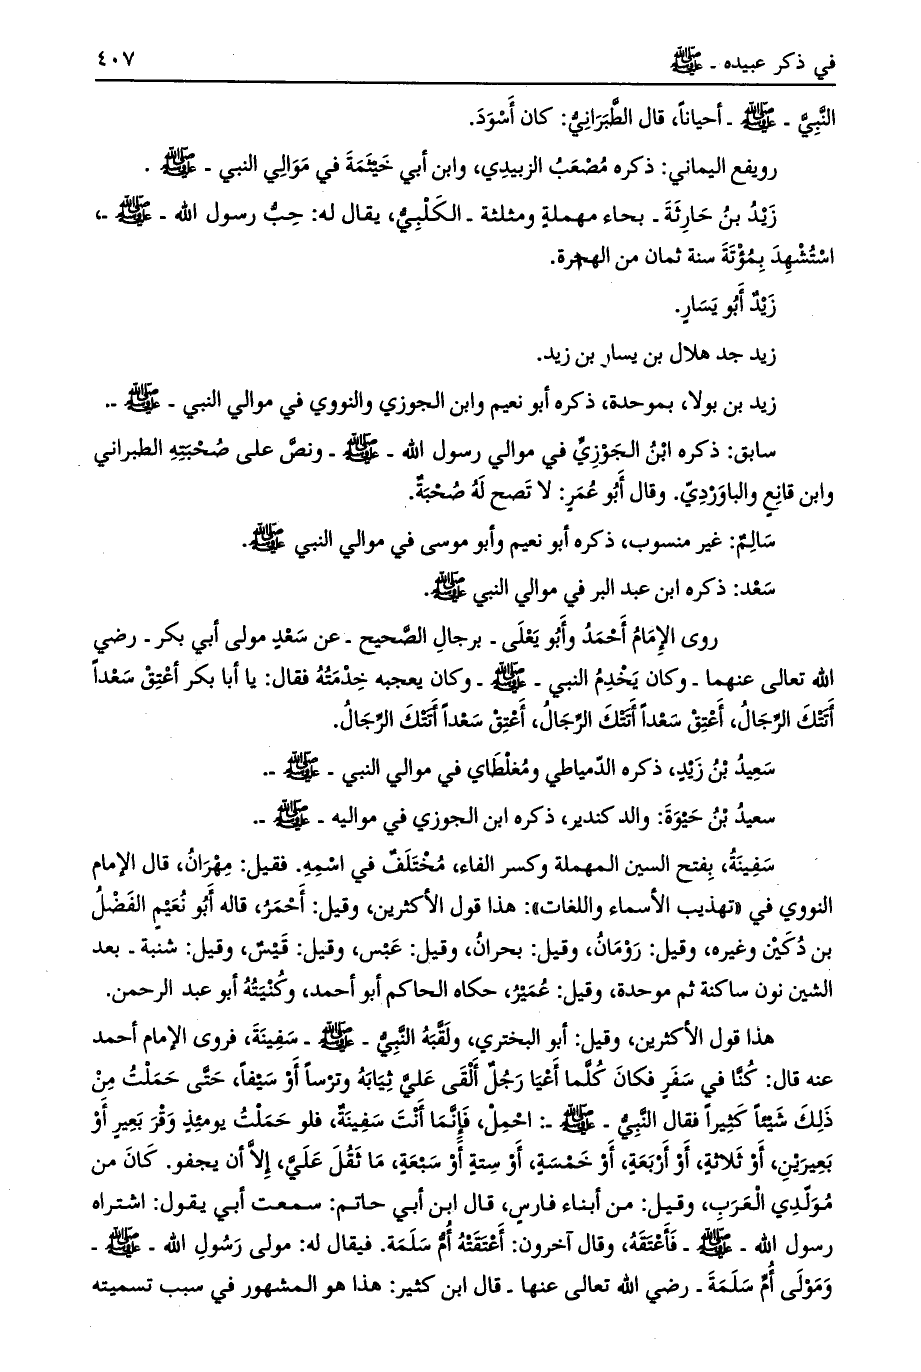 في ذكر عبيده ـ ﷺ ٤٠٧
النَّبِيِّ ـ ﷺ ـ أحياناً، قال الطَّبَرَانِيُّ: كان أَسْوَدَ.
رويفع اليماني: ذكره مُصْعَبُ الزبيدي، وابن أبي خَيْثَمَةَ في مَوَالِي النبي ـ ﷺ ـ.
زَيْدُ بنُ حَارِثَةَ ـ بحاء مهملةٍ ومثلثة ـ الكَلْبِيُّ، يقال له: حِبُّ رسول الله ـ ﷺ ـ،
اسْتُشْهِدَ بِمُؤْتَةَ سنة ثمان من الهجرة.
زَيْدٌ أَبُو يَسَارٍ.
زيد جد هلال بن يسار بن زيد.
زيد بن بولا، بموحدة، ذكره أبو نعيم وابن الجوزي والنووي في موالي النبي ـ ﷺ ـ.
سابق: ذكره ابْنُ الجَوْزِيِّ في موالي رسول الله ـ ﷺ ـ ونصَّ على صُحْبَتِهِ الطبراني
وابن قانِعٍ والباوَرْدِيّ. وقال أَبُو عُمَرٍ: لا تَصح لَهُ صُحْبَةٌ.
سَالِمٌ: غير منسوب، ذكره أبو نعيم وأبو موسى في موالي النبي ﷺ.
سَعْد: ذكره ابن عبد البر في موالي النبي ﷺ.
روى الإِمَامُ أَحْمَدُ وأَبُو يَعْلَى ـ برجالِ الصَّحيح ـ عن سَعْدٍ مولى أبي بكر ـ رضي
الله تعالى عنهما ـ وكان يَخْدِمُ النبي ـ ﷺ ـ وكان يعجبه خِدْمَتُهُ فقال: يا أبا بكر أَعْتِقْ سَعْداً
أَتَتْكَ الرِّجَالُ، أَعْتِقْ سَعْداً أَتَتْكَ الرِّجَالُ، أَعْتِقْ سَعْداً أَتَتْكَ الرِّجَالُ.
سَعِيدُ بْنُ زَيْدٍ، ذكره الدّمياطي ومُغلْطَاي في موالي النبي ـ ﷺ ـ.
سعيدُ بْنُ حَيْوَةَ: والد كندير، ذكره ابن الجوزي في مواليه ـ ﷺ ـ.
سَفِينَةُ، بِفتح السين المهملة وكسر الفاء، مُخْتَلَفٌ في اسْمِهِ. فقيل: مِهْرَانُ، قال الإمام
النووي في «تهذيب الأسماء واللغات»: هذا قول الأكثرين، وقيل: أَحْمَرُ، قاله أَبُو نُعَيْمٍ الفَضْلُ
بن دُكَيْن وغيره، وقيل: رَوْمَانُ، وقيل: بحرانُ، وقيل: عَبْس، وقيل: قَيْسٌ، وقيل: شنبة ـ بعد
الشين نون ساكنة ثم موحدة، وقيل: عُمَيْرُ، حكاه الحاكم أبو أحمد، وكُنْيَتُهُ أبو عبد الرحمن.
هذا قول الأكثرين، وقيل: أبو البختري، ولَقَّبَهُ النَّبِيُّ ـ ﷺ ـ سَفِينَةَ، فروى الإمام أحمد
عنه قال: كُنَّا في سَفَرٍ فكانَ كُلَّما أَعْيَا رَجُلٌ أَلْقَى عَليَّ ثِيَابَهُ وترْساً أوْ سَيْفاً، حَتَّى حَمَلْتُ مِنْ
ذَلِكَ شَيْئاً كَثِيراً فقال النَّبِيُّ ـ ﷺ ـ: احْمِلْ، فَإِنَّمَا أَنْتَ سَفِينَةٌ، فلو حَمَلْتُ يومئِذٍ وَقْرَ بَعِيرٍ أَوْ
بَعِيرَيْنِ، أَوْ ثَلاثةٍ، أَوْ أَرْبَعَةٍ، أَوْ خَمْسَةٍ، أَوْ سِتةٍ أَوْ سَبْعَةٍ، مَا ثَقُلَ عَلَيَّ، إلاَّ أن يجفو. كَانَ من
مُوَلَّدِي الْعَرَبِ، وقيل: من أبناء فارس، قال ابن أبي حاتم: سمعت أبي يقول: اشتراه
رسول الله ـ ﷺ ـ فَأَعْتَقَهُ، وقال آخرون: أَعْتَقَتْهُ أُمُّ سَلَمَة. فيقال له: مولى رَسُولِ الله ـ ﷺ ـ
وَمَوْلَى أُمِّ سَلَمَةَ ـ رضي الله تعالى عنها ـ قال ابن كثير: هذا هو المشهور في سبب تسميته